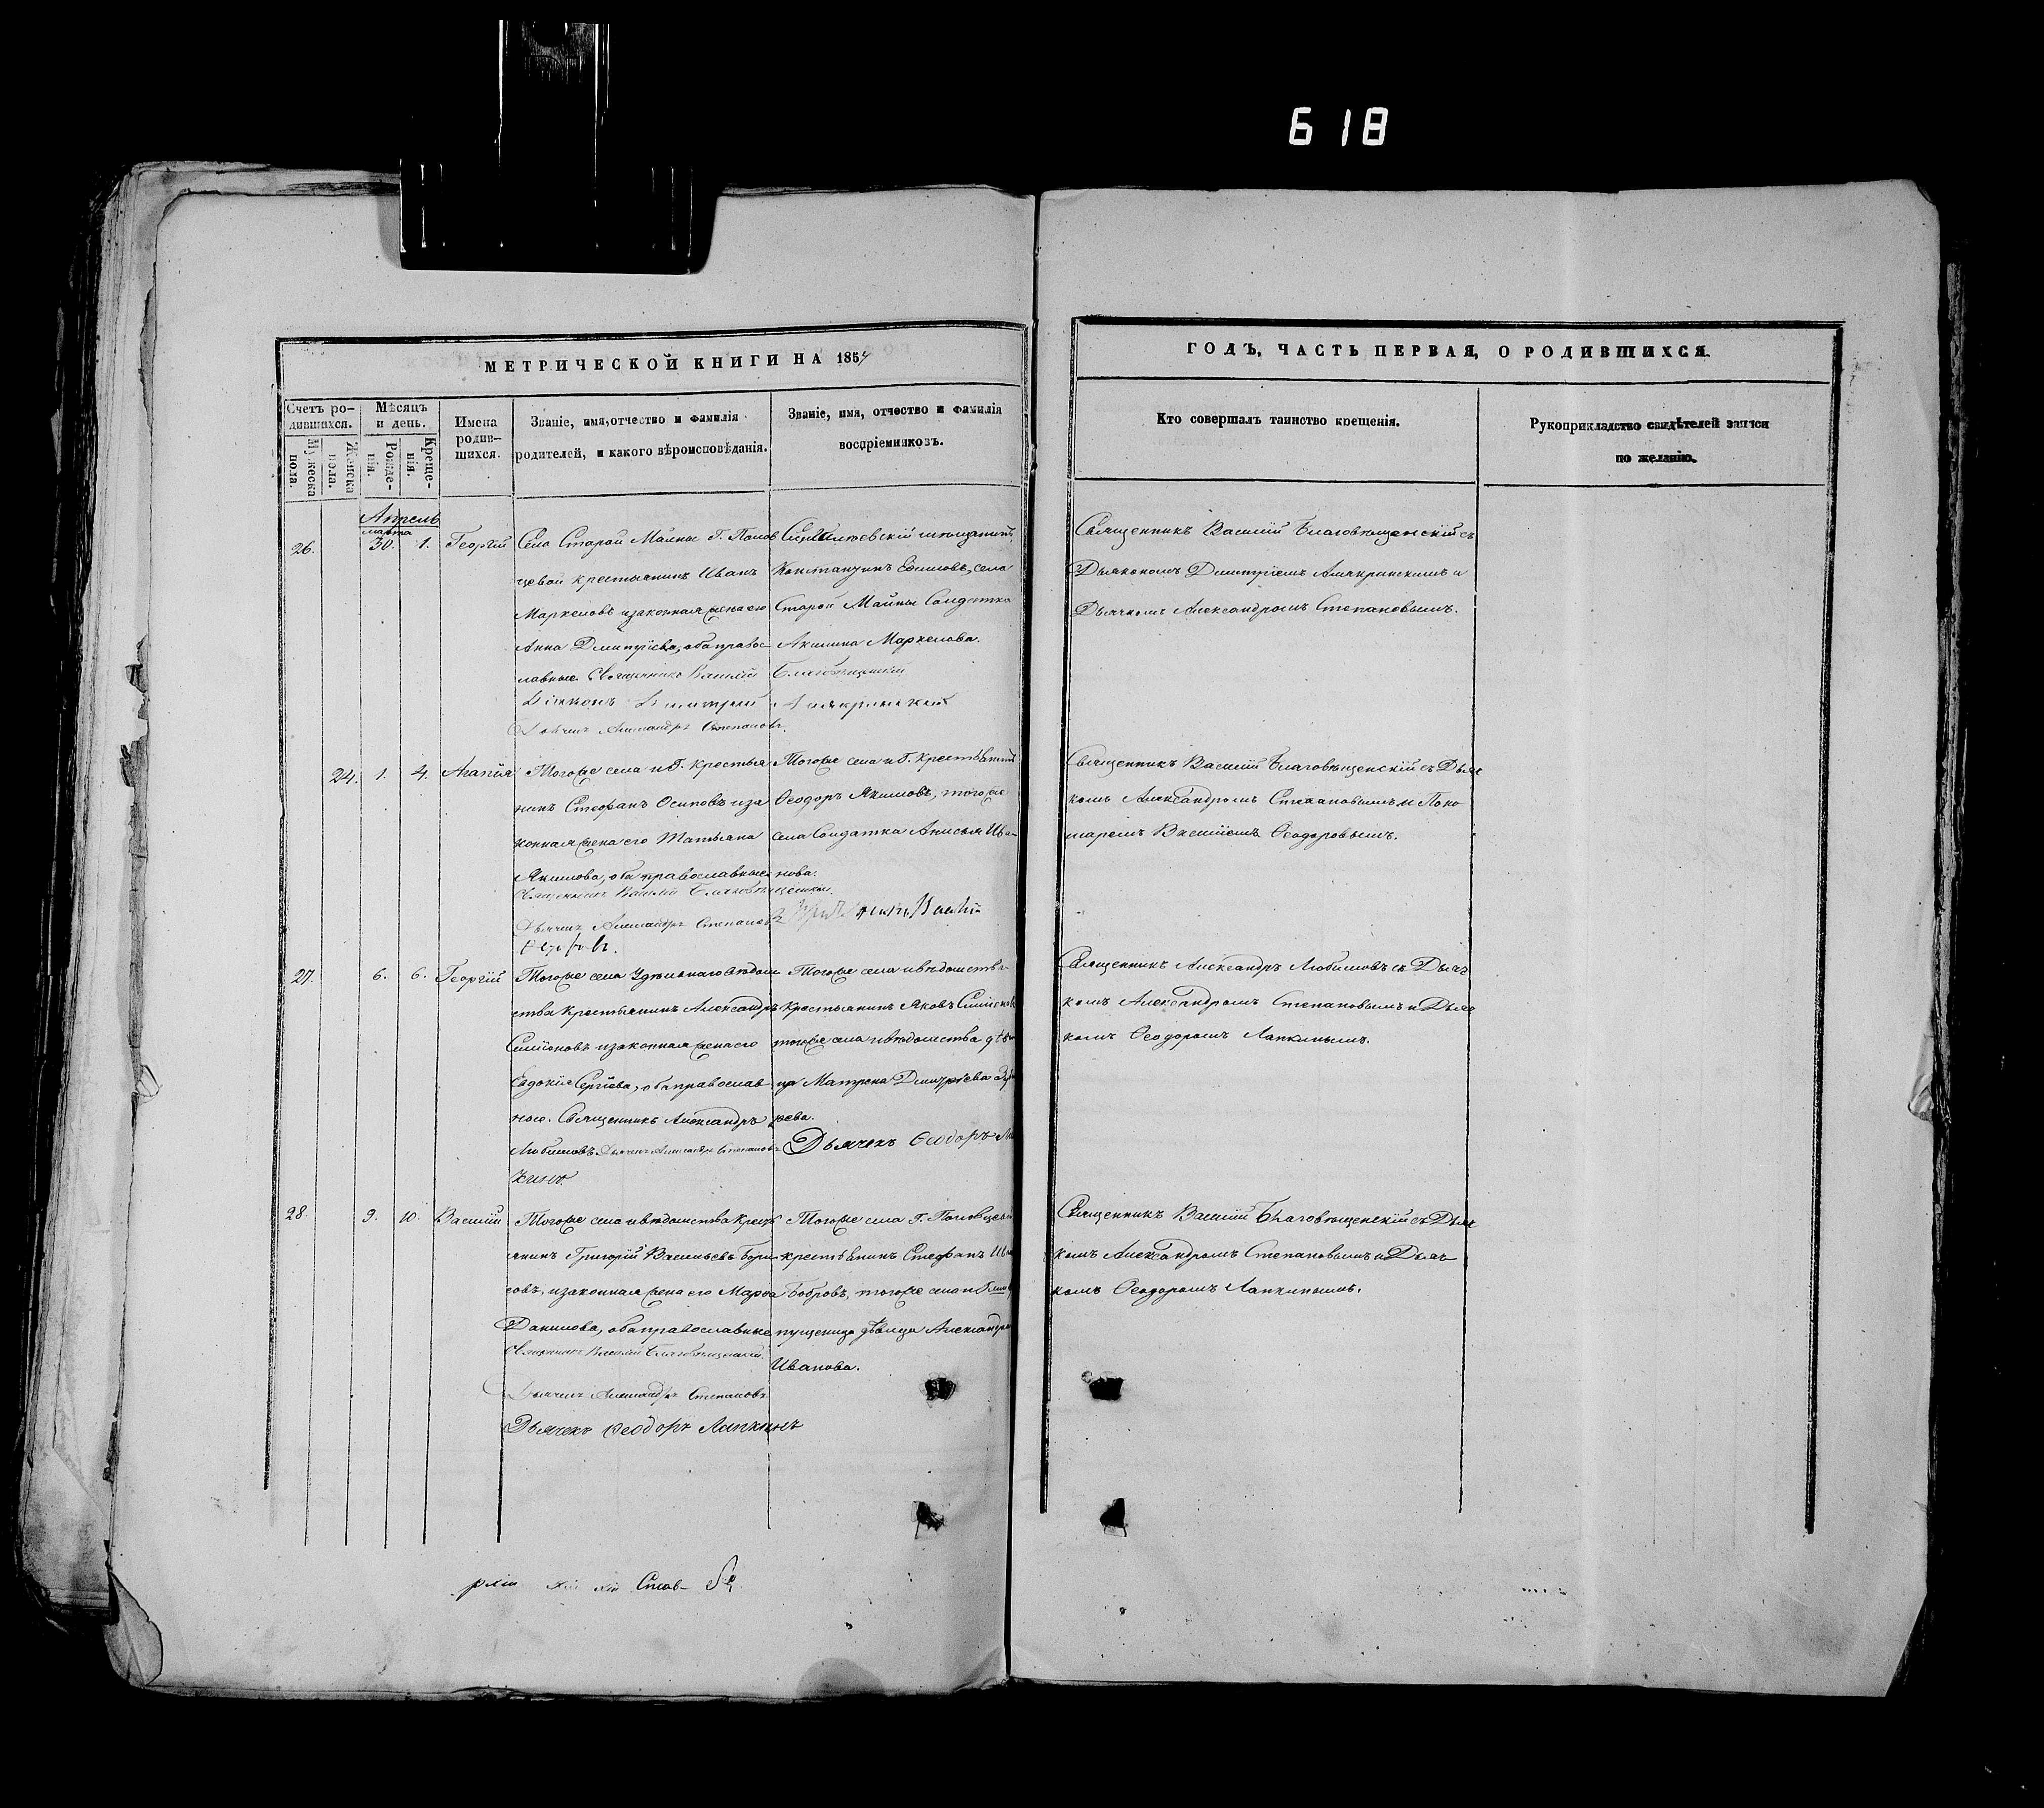 618
МЕТРИЧЕСКОЙ КНИГИ НА 1854
ГОДЪ, ЧАСТЬ ПЕРВАЯ, О РОДИВШИХСЯ.
Счетъ ро-
дившихся.
Мужеска
пола.
Женска
пола.
Мѣсяцъ
и день.
Рожде-
нія.
Креще-
нія.
Имена
родив-
шихся.
Званіе, имя, отчество и фамилія
родителей, и какого вѣроисповѣданія.
Званіе, имя, отчество и фамилія
воспріемниковъ.
Кто совершалъ таинство крещенія.
Рукоприкладство свидѣтелей записи
по желанію.
Апрель
марта
26. 30. 1. Георгій
Села Старой Майны Г. Попов
цевой крестьянинъ Иванъ
Маркеловъ и законная жена его
Анна Дмитріева, оба правос
лавные. Священникъ Василій Благовѣщенскій
Діаконъ Димитрій
Дьячекъ Александръ Степановъ.
мѣщанинъ
Константинъ Ефимовъ, села
Старой Майны Солдатка
Акилина Маркелова.
Священникъ Василій Благовѣщенскій съ
Дьякономъ Димитріемъ и
Дьячкомъ Александромъ Степановымъ.
24. 1. 4. Агапія
Тогоже села и Г. крестья
нинъ Стефанъ Осиповъ и за
конная жена его Татьяна
Якимова, оба православные
Священникъ Василій Благовѣщенскій.
Дьячекъ Александръ Степановъ
Тогоже села и Г. крестьянинъ
Ѳеодоръ Якимовъ, тогоже
села Солдатка Анисья Ива-
нова.
Священникъ Василій Благовѣщенскій съ Дьяч
комъ Александромъ Степановымъ и Поно
маремъ Василіемъ Ѳеодоровымъ.
27. 6. 6. Георгій
Тогоже села Удѣльнаго вѣдом
ства крестьянинъ Александръ
Симіоновъ и законная жена его
Евдокія Сергіева, оба православ
ные. Священникъ Александръ
Любимовъ Дьячекъ Александръ Степановъ
Тогоже села и вѣдомства
крестьянинъ Яковъ Симіоновъ
тогоже села и вѣдомства дѣви
ца Матрена Димитріева
рева.
Дьячекъ Ѳеодоръ Лап
кинъ.
Священникъ Александръ Любимовъ съ Дьяч
комъ Александромъ Степановымъ и Дьяч
комъ Ѳеодоромъ Лапкинымъ.
28. 9. 10. Василій
Тогоже села и вѣдомства крест
янинъ Григорій Васильевъ Бори
совъ, и законная жена его Марѳа
Данилова, оба православные
Священникъ Василій Благовѣщенскій.
Дьячекъ Александръ Степановъ
Дьячекъ Ѳеодоръ Лапкинъ
Тогоже села Г. Поповцевой
крестьянинъ Стефанъ
Бобровъ, тогоже села
дѣвица Александра
Иванова.
Священникъ Василій Благовѣщенскій съ Дьяч
комъ Александромъ Степановымъ и Дьяч
комъ Ѳеодоромъ Лапкинымъ.